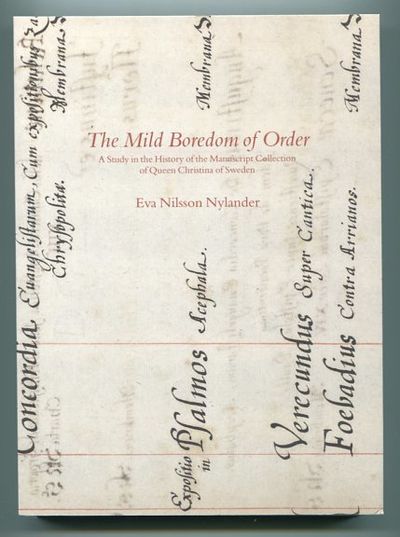 The Mild Boredom of Order
A Study in the History of the Manuscript Collection
of Queen Christina of Sweden
Eva Nilsson Nylander
Concordia Euangelistarum, Cum expositionibus Za
Chrysopolita. Membrana S
Expositio in Psalmos Acephala. Membrana S
Verecundus Super Cantica.
Foebadius Contra Arrianos. Membrana S